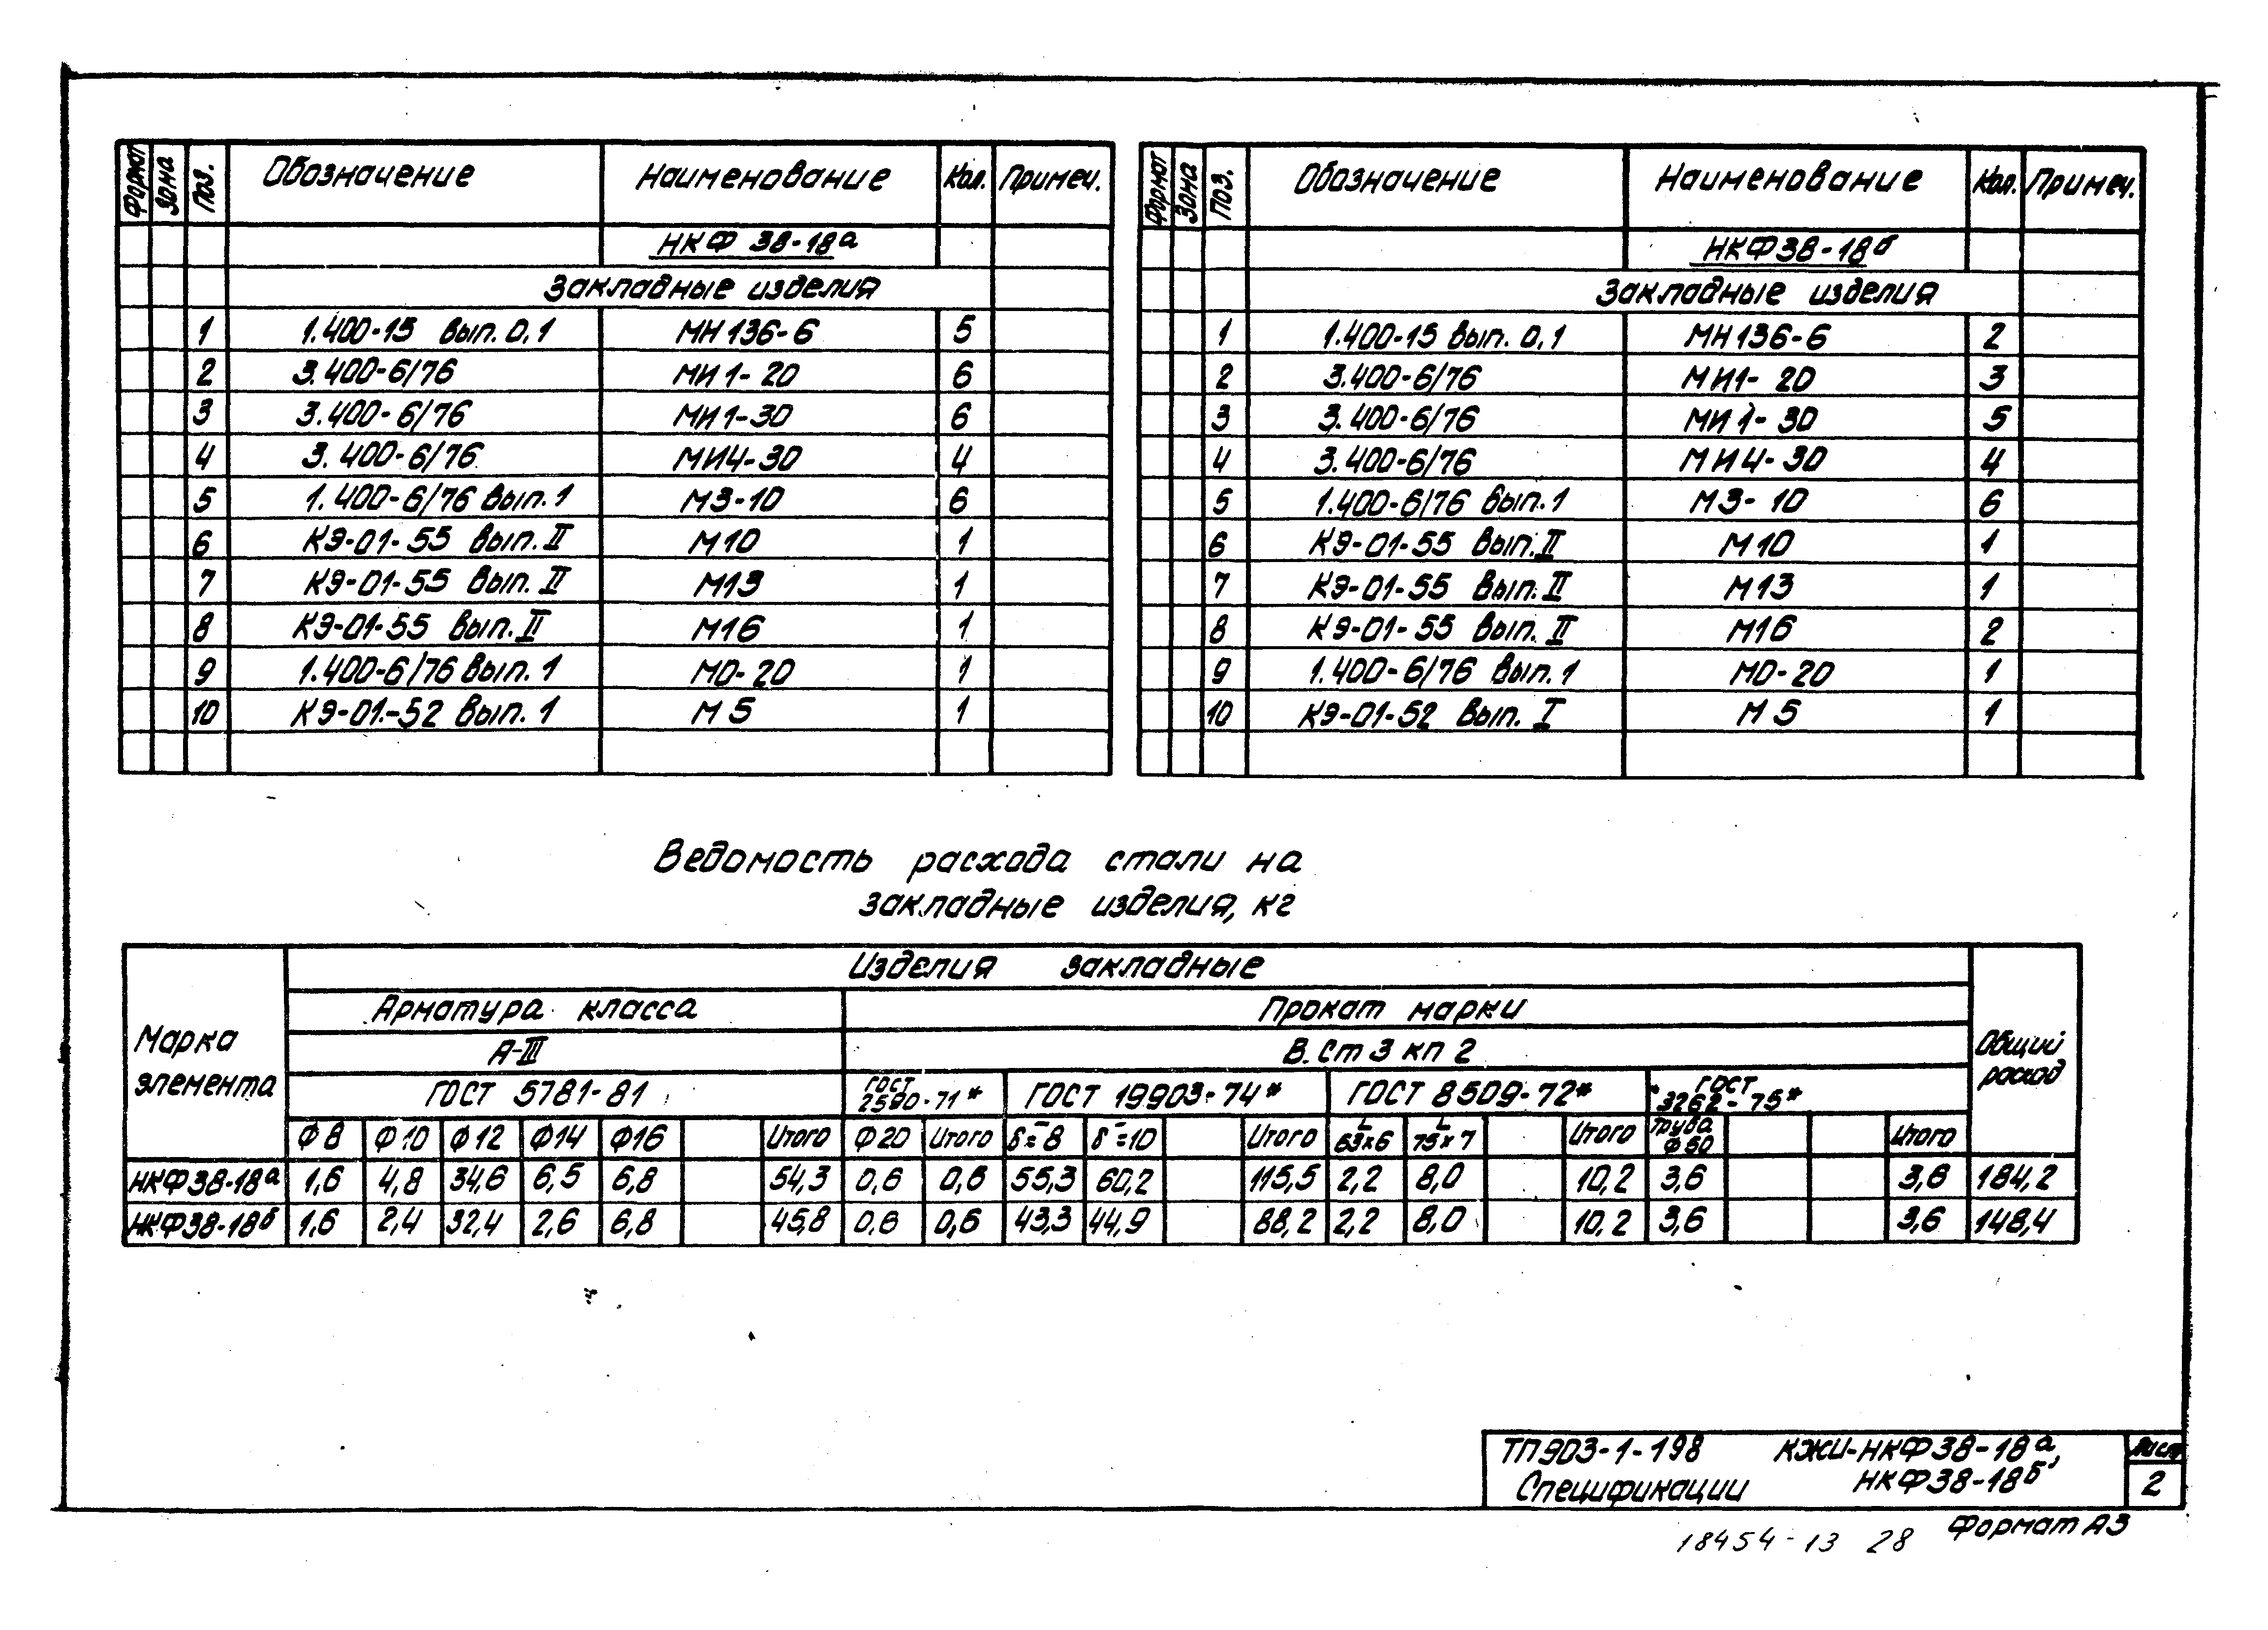 Формат Зона Поз. Обозначение Наименование Кол. Примеч.
НКФ 38-18а
Закладные изделия
1 1.400-15 вып. 0,1 МН 136-6 5
2 3.400-6/76 МИ 1-20 6
3 3.400-6/76 МИ 1-30 6
4 3.400-6/76 МИ4-30 4
5 1.400-6/76 вып.1 М3-10 6
6 КЭ-01-55 вып. II М10 1
7 КЭ-01-55 вып. II М13 1
8 КЭ-01-55 вып. II М16 1
9 1.400-6/76 вып. 1 МО-20 1
10 КЭ-01.-52 вып. 1 М 5 1
Формат Зона Поз. Обозначение Наименование Кол. Примеч.
НКФ38-18б
Закладные изделия
1 1.400-15 вып. 0,1 МН 136-6 2
2 3.400-6/76 МИ1-20 3
3 3.400-6/76 МИ 1-30 5
4 3.400-6/76 МИ 4-30 4
5 1.400-6/76 вып.1 М3-10 6
6 КЭ-01-55 вып. II М10 1
7 КЭ-01-55 вып. II М13 1
8 КЭ-01-55 вып. II М16 2
9 1.400-6/76 вып.1 МО-20 1
10 КЭ-01-52 вып. I М 5 1
Ведомость расхода стали на
закладные изделия, кг
Марка элемента Изделия закладные Общий расход
Арматура класса Прокат марки
А-III В.Ст 3 кп 2
ГОСТ 5781-81 ГОСТ 2590-71* ГОСТ 19903-74* ГОСТ 8509-72* ГОСТ 3262-75*
Ф8 Ф10 Ф12 Ф14 Ф16 Итого Ф20 Итого δ=8 δ=10 Итого L 63х6 L 75х7 Итого Труба Ф50 Итого
НКФ38-18а 1,6 4,8 34,6 6,5 6,8 54,3 0,6 0,6 55,3 60,2 115,5 2,2 8,0 10,2 3,6 3,6 184,2
НКФ38-18б 1,6 2,4 32,4 2,6 6,8 45,8 0,6 0,6 43,3 44,9 88,2 2,2 8,0 10,2 3,6 3,6 148,4
ТП903-1-198 КЖИ-НКФ38-18а, Лист
Спецификации НКФ38-18б 2
Формат А3
18454-13 28